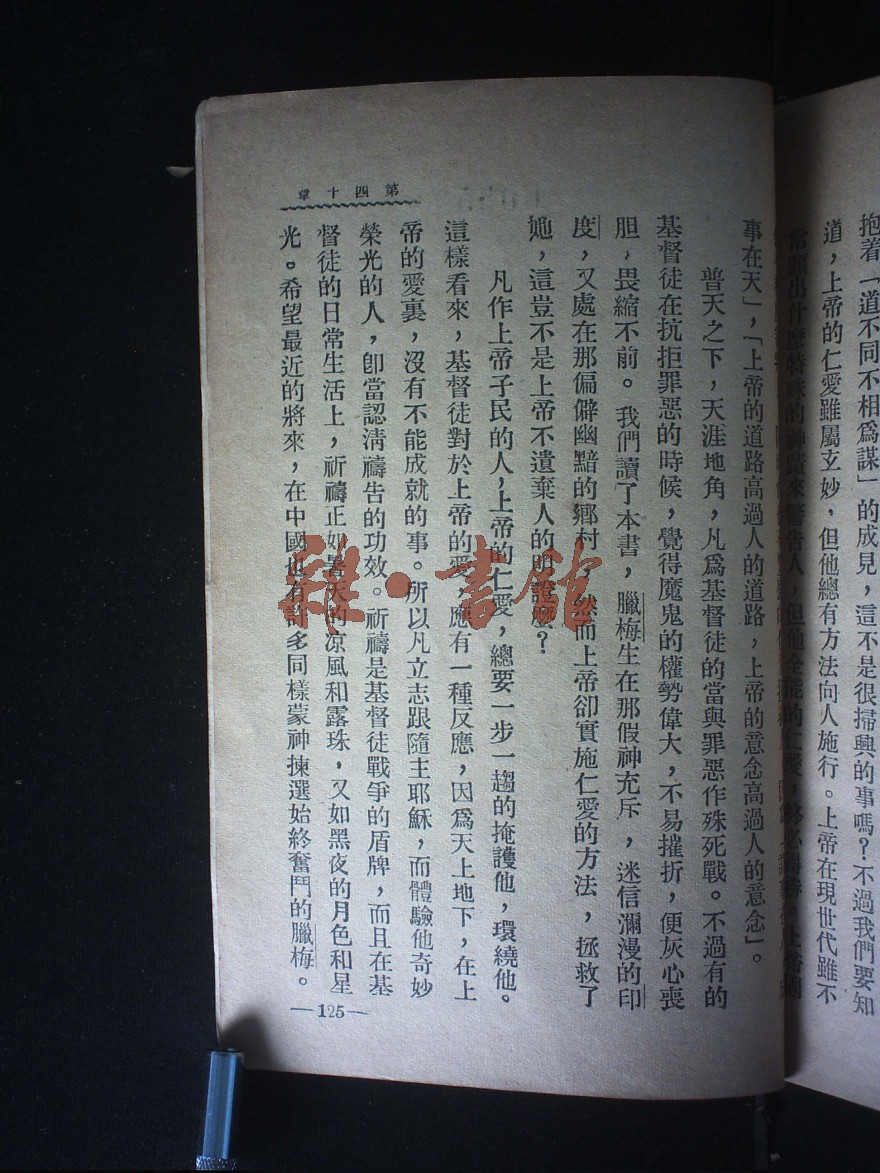 抱着「道不同不相爲謀」的成見，這不是很掃興的事嗎？不過我們要知
道，上帝的仁愛雖屬玄妙，但他總有方法向人施行。上帝在現世代雖不
常顯出什麼特殊的神蹟來警告人，但他全能的仁愛，終必得勝。上帝
事在天」，「上帝的道路高過人的道路，上帝的意念高過人的意念」。
普天之下，天涯地角，凡爲基督徒的當與罪惡作殊死戰。不過有的
基督徒在抗拒罪惡的時候，覺得魔鬼的權勢偉大，不易摧折，便灰心喪
胆，畏縮不前。我們讀了本書，臘梅生在那假神充斥，迷信瀰漫的印
度，又處在那偏僻幽黯的鄉村，然而上帝卻實施仁愛的方法，拯救了
她，這豈不是上帝不遺棄人的明證麼？
凡作上帝子民的人，上帝的仁愛，總要一步一趨的掩護他，環繞他。
這樣看來，基督徒對於上帝的愛，應有一種反應，因爲天上地下，在上
帝的愛裏，沒有不能成就的事。所以凡立志跟隨主耶穌，而體驗他奇妙
榮光的人，卽當認清禱告的功效。祈禱是基督徒戰爭的盾牌，而且在基
督徒的日常生活上，祈禱正如暑天的凉風和露珠，又如黑夜的月色和星
光。希望最近的將來，在中國也有許多同樣蒙神揀選始終奮鬥的臘梅。
第四十章
—125—
雜·書館